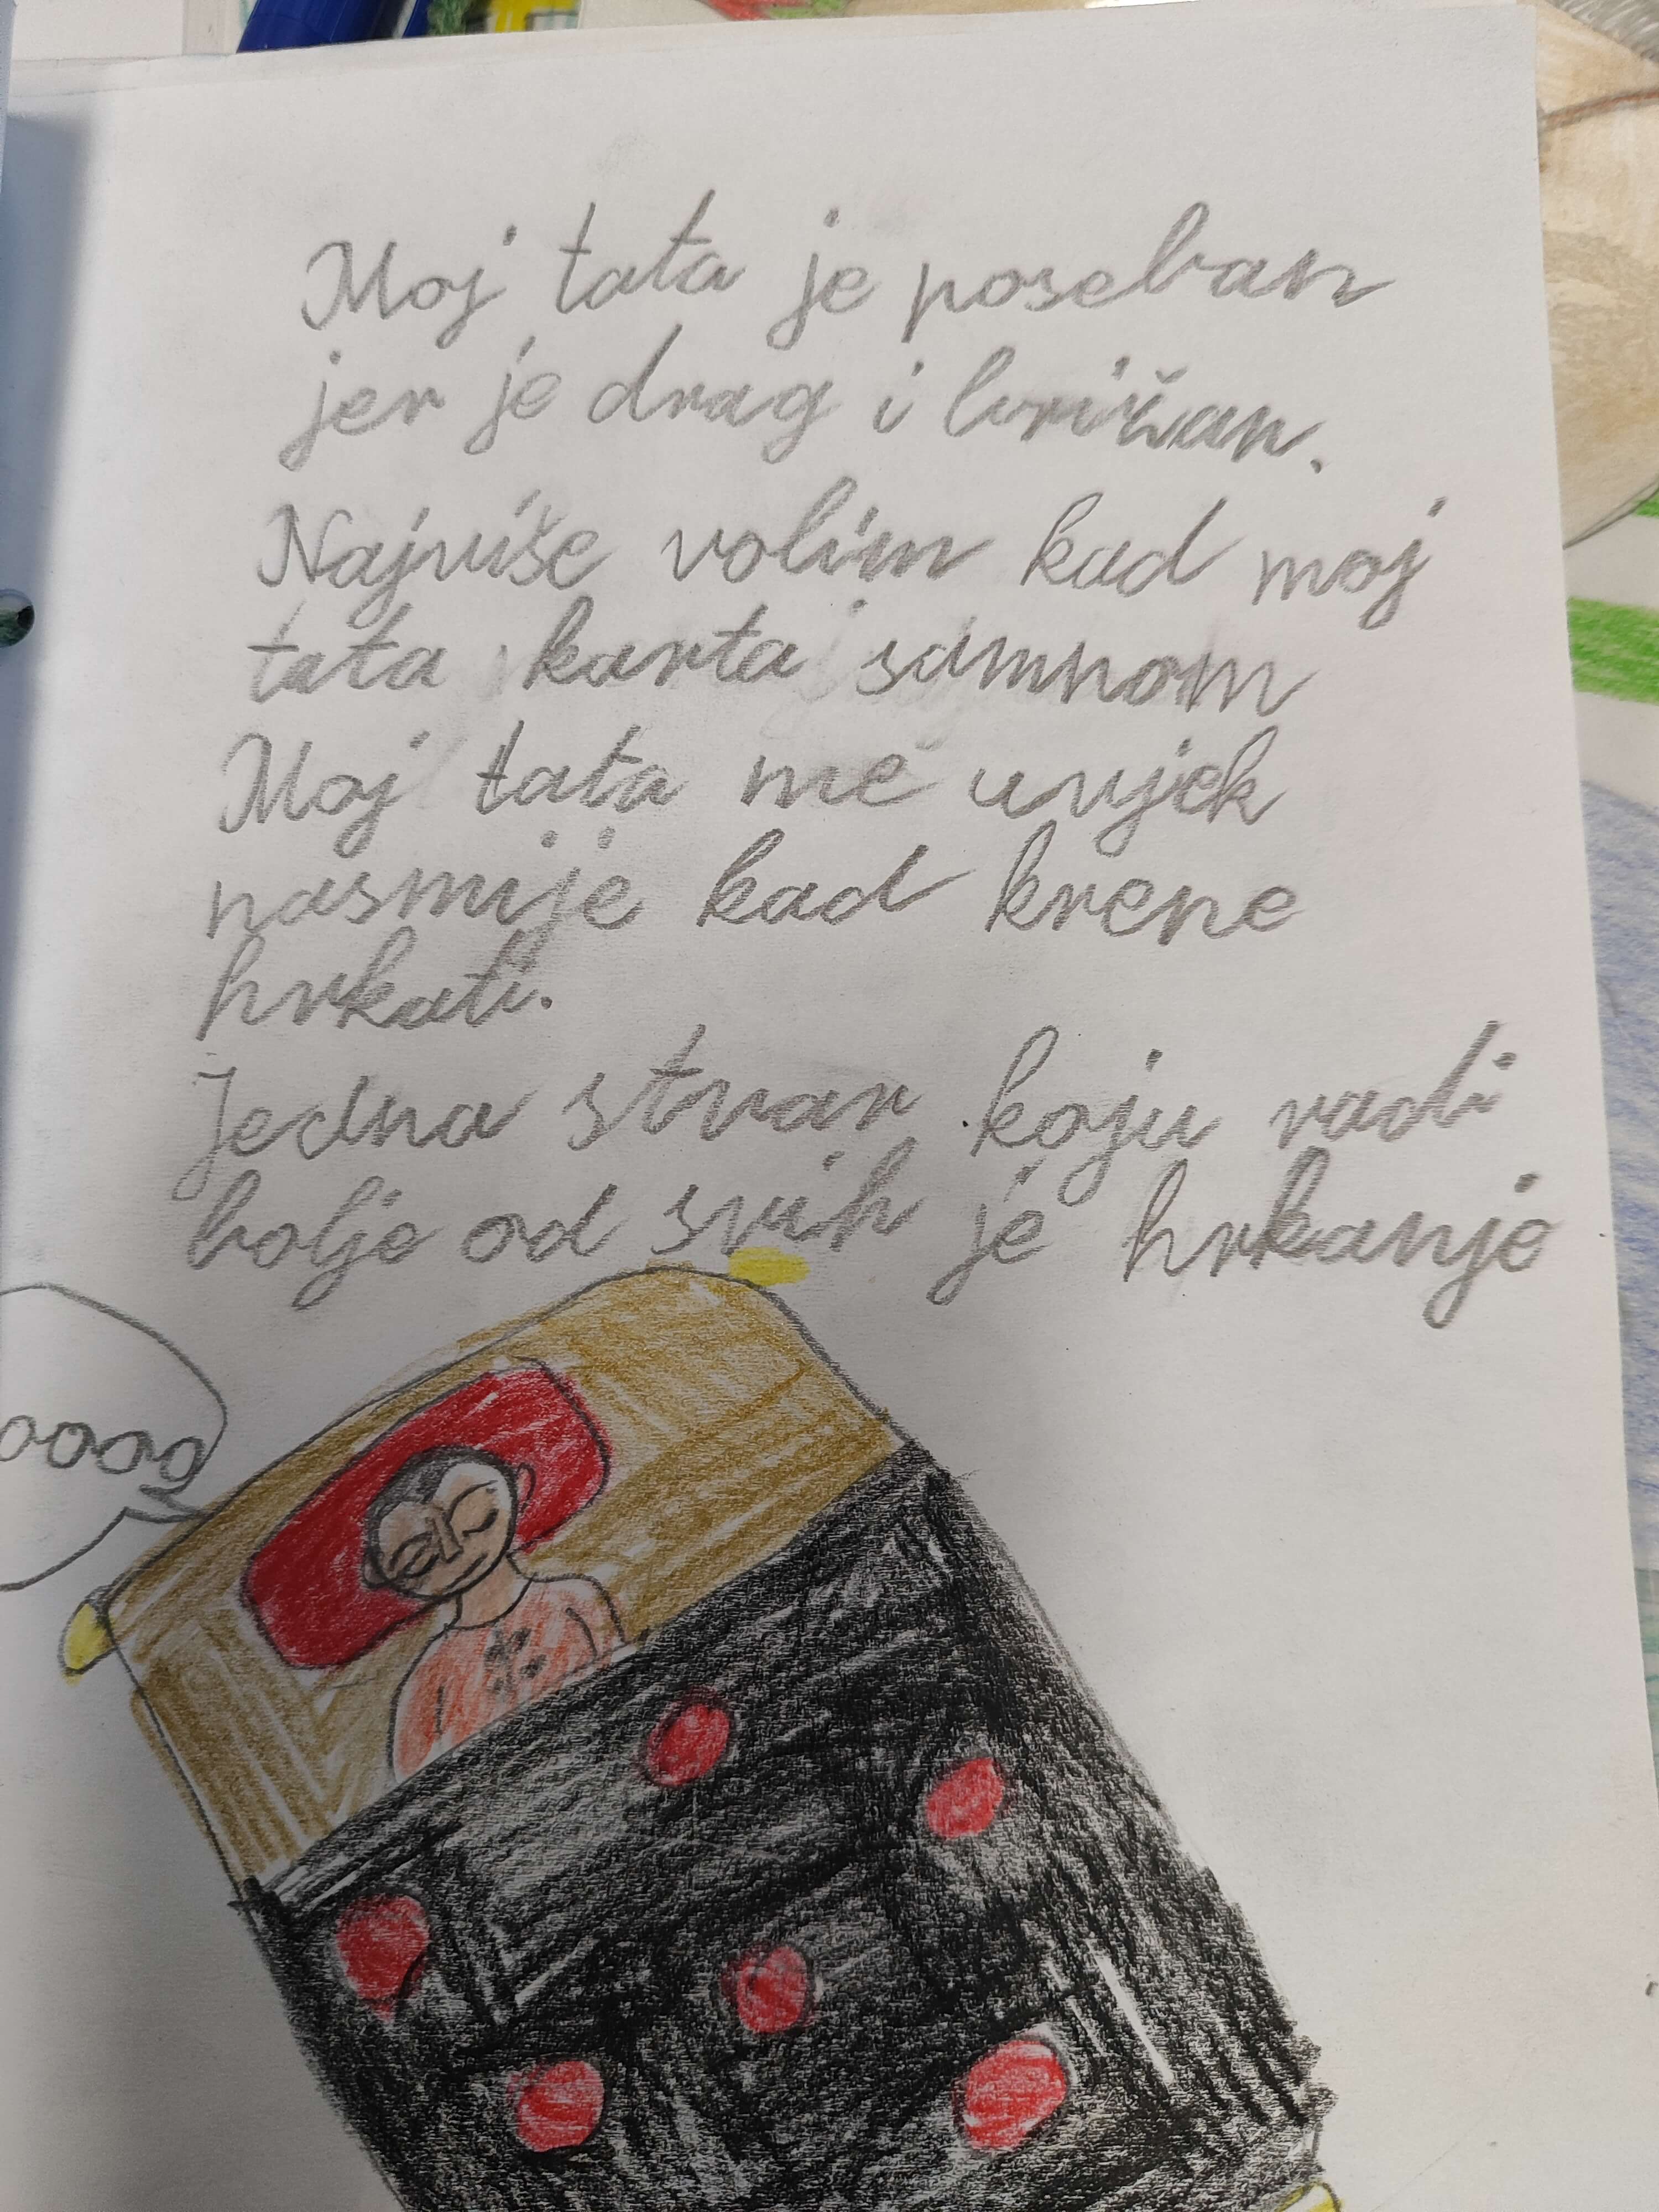 Moj tata je poseban
jer je drag i brižan.
Najviše volim kad moj
tata karta samnom
Moj tata me uvjek
nasmije kad krene
hrkati.
Jedna stvar koju radi
bolje od svih je hrkanje
oooo